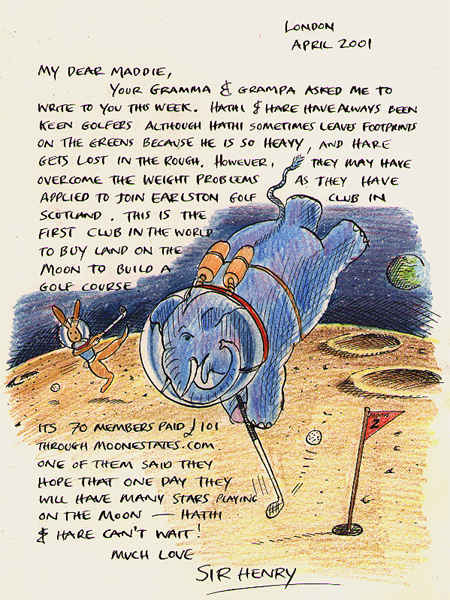 LONDON
APRIL 2001
MY DEAR MADDIE,
YOUR GRAMMA & GRAMPA ASKED ME TO
WRITE TO YOU THIS WEEK. HATHI & HARE HAVE ALWAYS BEEN
KEEN GOLFERS ALTHOUGH HATHI SOMETIMES LEAVES FOOTPRINTS
ON THE GREENS BECAUSE HE IS SO HEAVY, AND HARE
GETS LOST IN THE ROUGH. HOWEVER, THEY MAY HAVE
OVERCOME THE WEIGHT PROBLEMS AS THEY HAVE
APPLIED TO JOIN EARLSTON GOLF CLUB IN
SCOTLAND. THIS IS THE
FIRST CLUB IN THE WORLD
TO BUY LAND ON THE
MOON TO BUILD A
GOLF COURSE
ITS 70 MEMBERS PAID £101
THROUGH MOONESTATES.COM
ONE OF THEM SAID THEY
HOPE THAT ONE DAY THEY
WILL HAVE MANY STARS PLAYING
ON THE MOON — HATHI
& HARE CAN'T WAIT!
MUCH LOVE
SIR HENRY
2